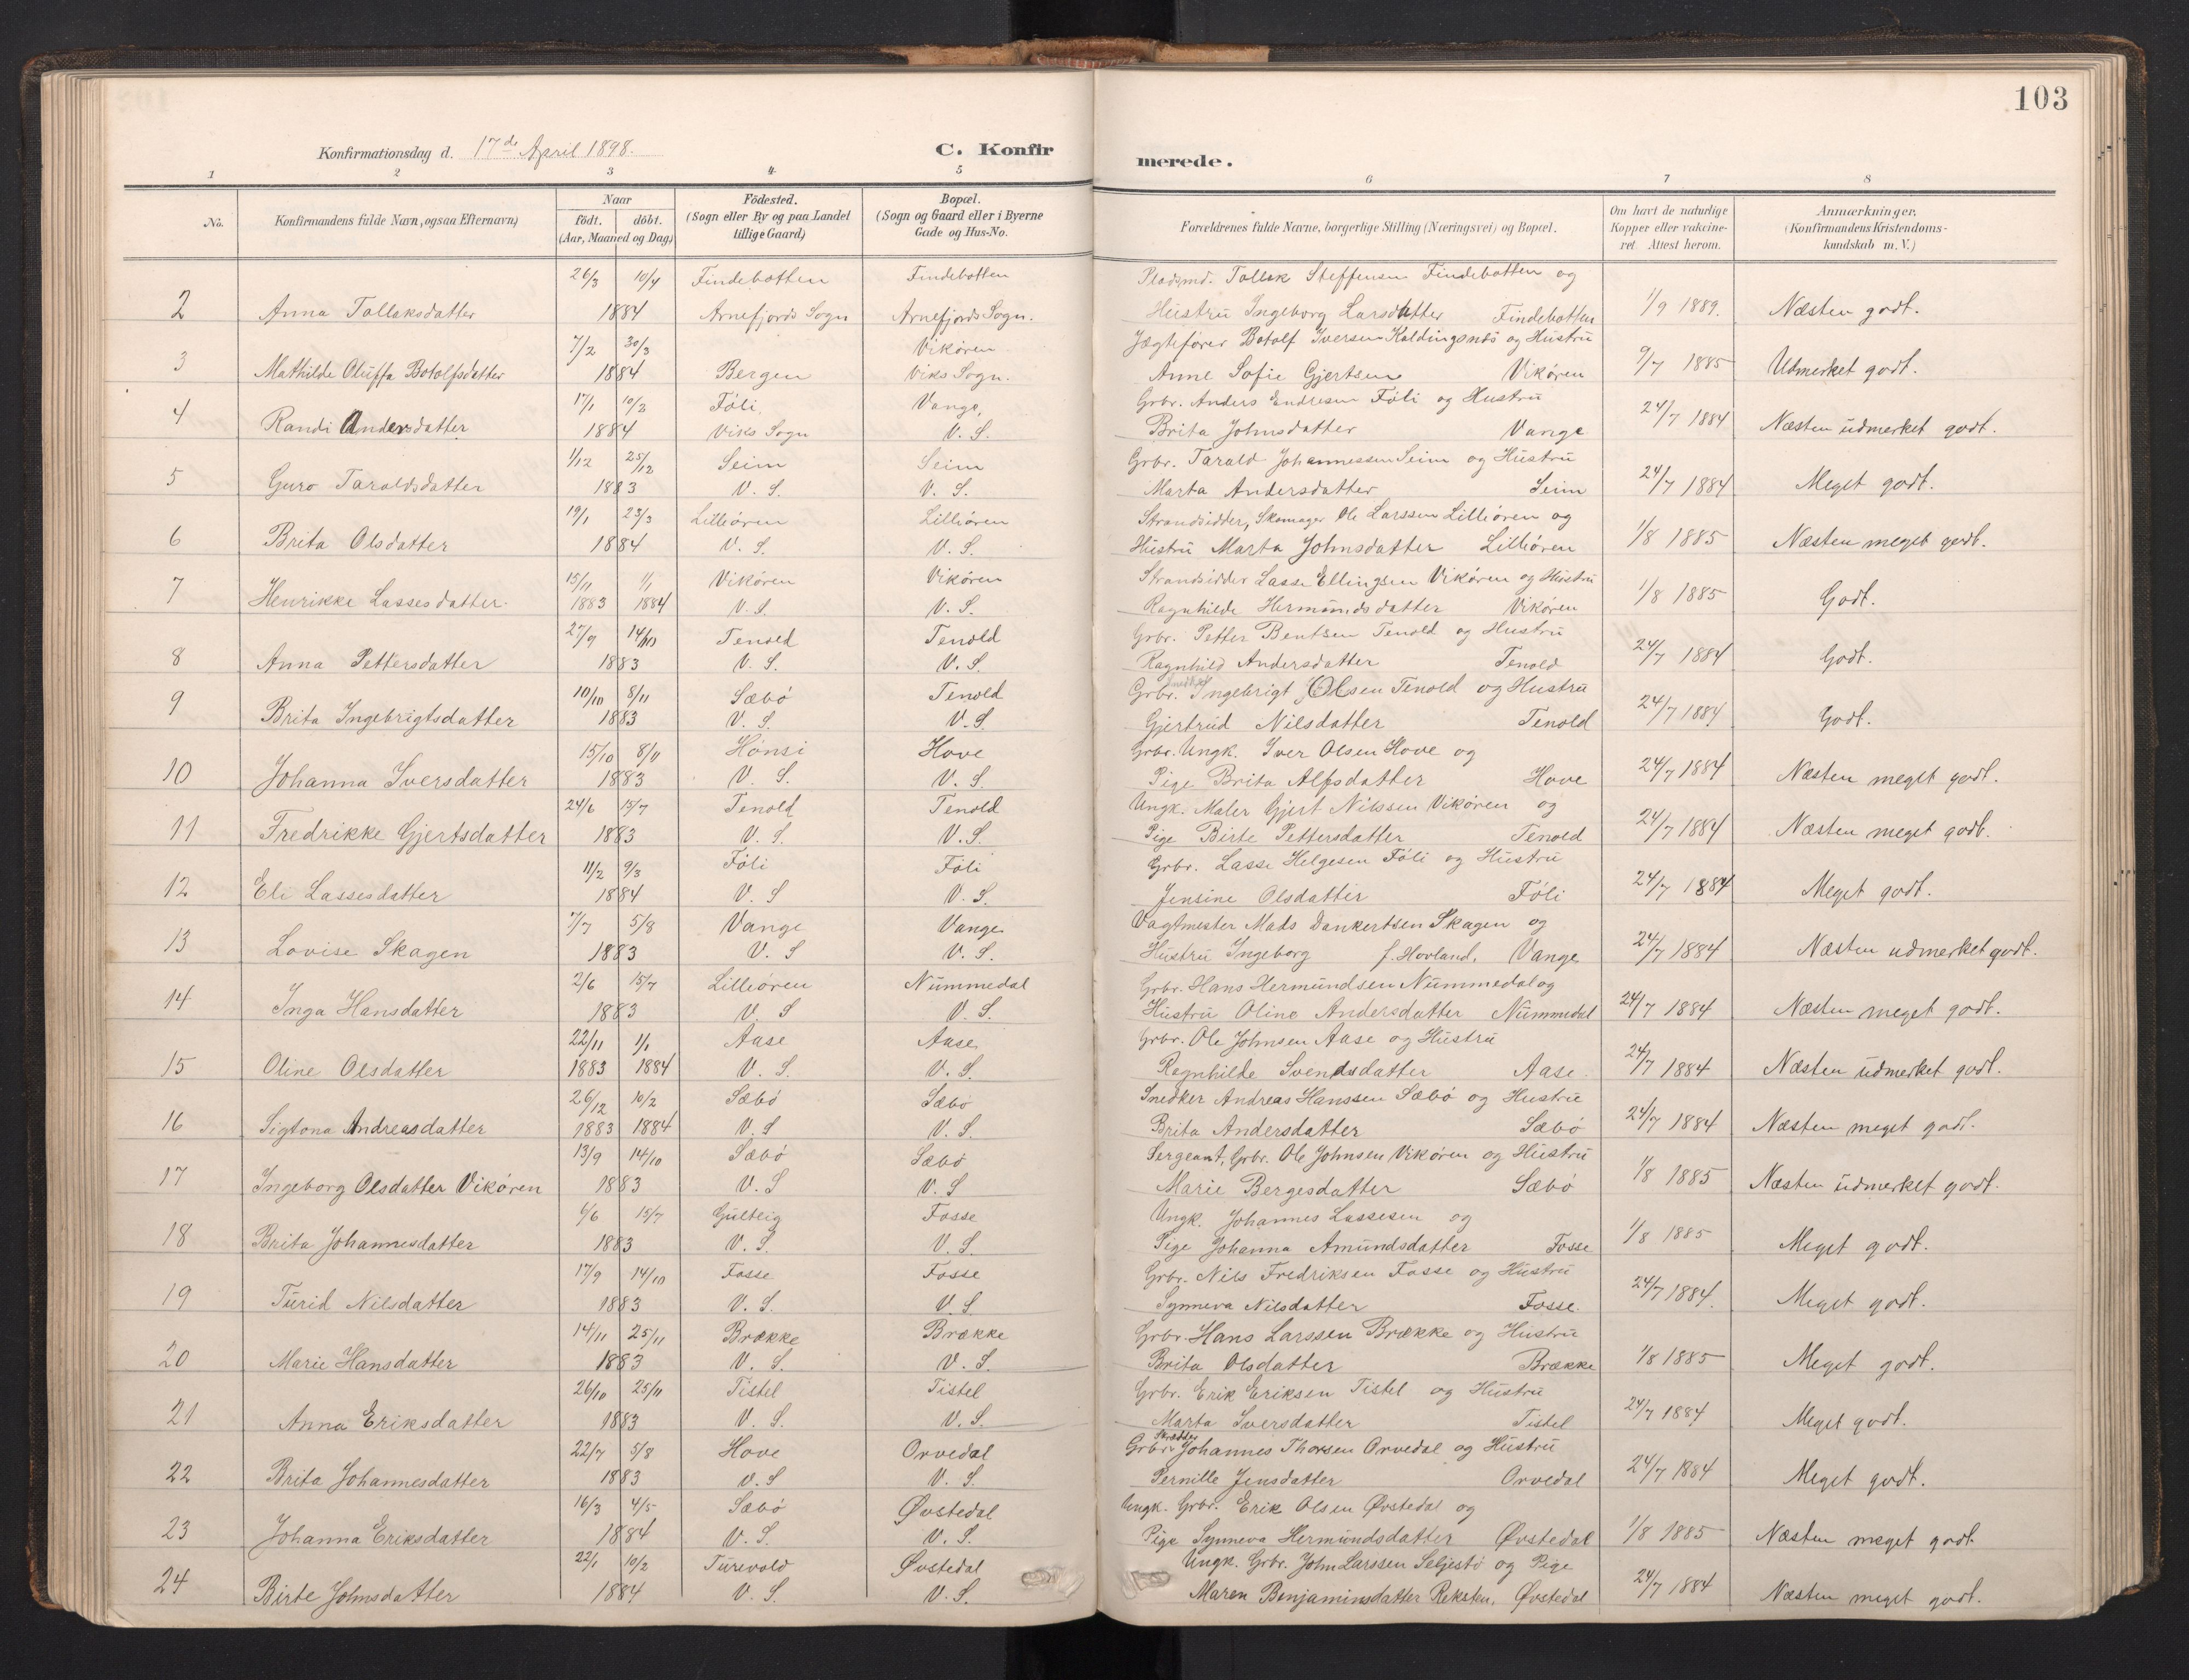 103
Konfirmationsdag d. 17de April 1898.
C. Konfirmerede.
1 2 3 4 5 6 7 8
No. Konfirmandens fulde Navn, ogsaa Efternavn) Naar födt. döbt. (Aar, Maaned og Dag) Födested. (Sogn eller By og paa Landet tillige Gaard) Bopæl. (Sogn og Gaard eller i Byerne Gade og Hus-No. Forældrenes fulde Navne, borgerlige Stilling (Næringsvei) og Bopæl. Om havt de naturlige Kopper eller vaccineret. Attest herom. Anmærkninger. (Konfirmandens Kristendomskundskab m. V.)
26/3 10/4 Findebotten Findebotten Pladsmd. Tollak Steffensen Findebotten og
2 Anna Tollaksdatter 1884 Arnefjords Sogn Arnefjords Sogn. Hustru Ingeborg Larsdatter Findebotten 1/9 1889. Næsten godt.
7/2 30/3 Vikören Jægtefører Botolf Iversen Koldingsnæs og Hustru
3 Mathilde Oluffa Botolfsdatter 1884 Bergen Viks Sogn. Anne Sofie Gjertsen Vikören 9/7 1885 Udmerket godt.
17/1 10/2 Föli, Vange, Grbr. Anders Endresen Föli og Hustru
4 Randi Andersdatter 1884 Viks Sogn V. S. Brita Johnsdatter Vange 24/7 1884 Næsten udmerket godt.
1/12 25/12 Seim Seim Grbr. Tarald Johannessen Seim og Hustru
5 Guro Taraldsdatter 1883 V. S. V. S. Marta Andersdatter Seim 24/7 1884 Meget godt.
19/1 23/3 Lilleören Lilleören Strandsidder, Skomager Ole Larssen Lilleören og
6 Brita Olsdatter 1884 V. S. V. S. Hustru Marta Johnsdatter Lilleören 1/8 1885 Næsten meget godt.
15/11 1/1 Vikören Vikören Strandsidder Lasse Ellingsen Vikören og Hustru
7 Henrikke Lassesdatter. 1883 1884 V. S. V. S. Ragnhilde Hermundsdatter Vikören 1/8 1885 Godt.
27/9 14/10 Tenold Tenold Grbr. Petter Bentsen Tenold og Hustru
8 Anna Pettersdatter 1883 V. S. V. S. Ragnhild Andersdatter Tenold 24/7 1884 Godt.
10/10 8/11 Sæbö Tenold Grbr. Snedker Ingebrigt Olsen Tenold og Hustru
9 Brita Ingebrigtsdatter 1883 V. S. V. S. Gjertrud Nilsdatter Tenold 24/7 1884 Godt.
15/10 8/11 Hönsi Hove Grbr. Ungk. Iver Olsen Hove og
10 Johanna Iversdatter 1883 V. S. V. S. Pige Brita Alfsdatter Hove 24/7 1884 Næsten meget godt.
24/6 15/7 Tenold Tenold Ungk. Maler Gjert Nilssen Vikören og
11 Fredrikke Gjertsdatter 1883 V. S. V. S. Pige Birte Pettersdatter Tenold 24/7 1884 Næsten meget godt.
11/2 9/3 Föli Föli Grbr. Lasse Helgesen Föli og Hustru
12 Eli Lassesdatter 1884 V. S V. S. Jensine Olsdatter Föli 24/7 1884 Meget godt.
7/7 5/8 Vange Vange Vagtmester Mads Dankertsen Skagen og
13 Lovise Skagen 1883 V. S V. S. Hustru Ingeborg f. Hovland, Vange 24/7 1884 Næsten udmerket godt.
2/6 15/7 Lilleören Nummedal Grbr. Hans Hermundsen Nummedal og
14 Inga Hansdatter 1883 V. S V. S. Hustru Oline Andersdatter Nummedal 24/7 1884 Næsten meget godt.
22/11 1/1 Aase Aase Grbr. Ole Johnsen Aase og Hustru
15 Oline Olsdatter 1883 1884 V. S. V. S. Ragnhilde Svendsdatter Aase 24/7 1884 Næsten udmerket godt.
26/12 10/2 Sæbö Sæbö Snedker Andreas Hanssen Sæbö og Hustru
16 Sigtona Andreasdatter 1883 1884 V. S V. S. Brita Andersdatter Sæbö 24/7 1884 Næsten meget godt.
13/9 14/10 Sæbö Sæbö Sergeant, Grbr. Ole Johnsen Vikören og Hustru
17 Ingeborg Olsdatter Vikören 1883 V. S V. S Marie Bergesdatter Sæbö 1/8 1885 Næsten udmerket godt.
6/6 15/7 Gulteig Fosse Ungk. Johannes Lassesen og
18 Brita Johannesdatter 1883 V. S. V. S. Pige Johanna Amundsdatter Fosse 1/8 1885 Meget godt.
17/9 14/10 Fosse Fosse Grbr. Nils Fredriksen Fosse og Hustru
19 Turid Nilsdatter 1883 V. S. V. S. Synneva Nilsdatter Fosse. 24/7 1884. Meget godt.
14/11 25/11 Brække Brække Grbr. Hans Larssen Brække og Hustru
20 Marie Hansdatter 1883 V. S. V. S. Brita Olsdatter Brække 1/8 1885 Meget godt.
26/10 25/11 Tistel Tistel Grbr. Erik Eriksen Tistel og Hustru
21 Anna Eriksdatter 1883 V. S. V. S. Marta Iversdatter Tistel 24/7 1884 Meget godt.
22/7 5/8 Hove Orvedal Grbr. Skrædder Johannes Thorsen Orvedal og Hustru
22 Brita Johannesdatter 1883 V. S V. S. Pernille Jensdatter Orvedal 24/7 1884 Meget godt.
16/3 4/5 Sæbö Øvstedal Ungk. Grbr. Erik Olsen Øvstedal og
23 Johanna Eriksdatter 1884 V. S. V. S. Pige Synneva Hermundsdatter Øvstedal 1/8 1885 Næsten meget godt
22/1 10/2 Turvold Øvstedal Ungk. Grbr. John Larssen Seljestö og Pige
24 Birte Johnsdatter 1884 V. S. V. S. Maren Benjaminsdatter Reksten, Øvstedal 24/7 1884 Næsten meget godt.